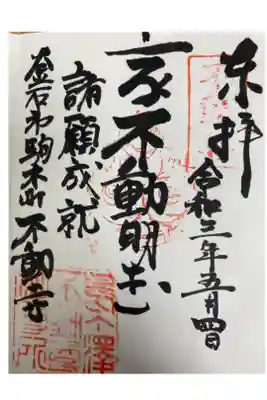 奉拝
令和三年五月四日
不動明王
諸願成就
釜石市駒木町 不動寺